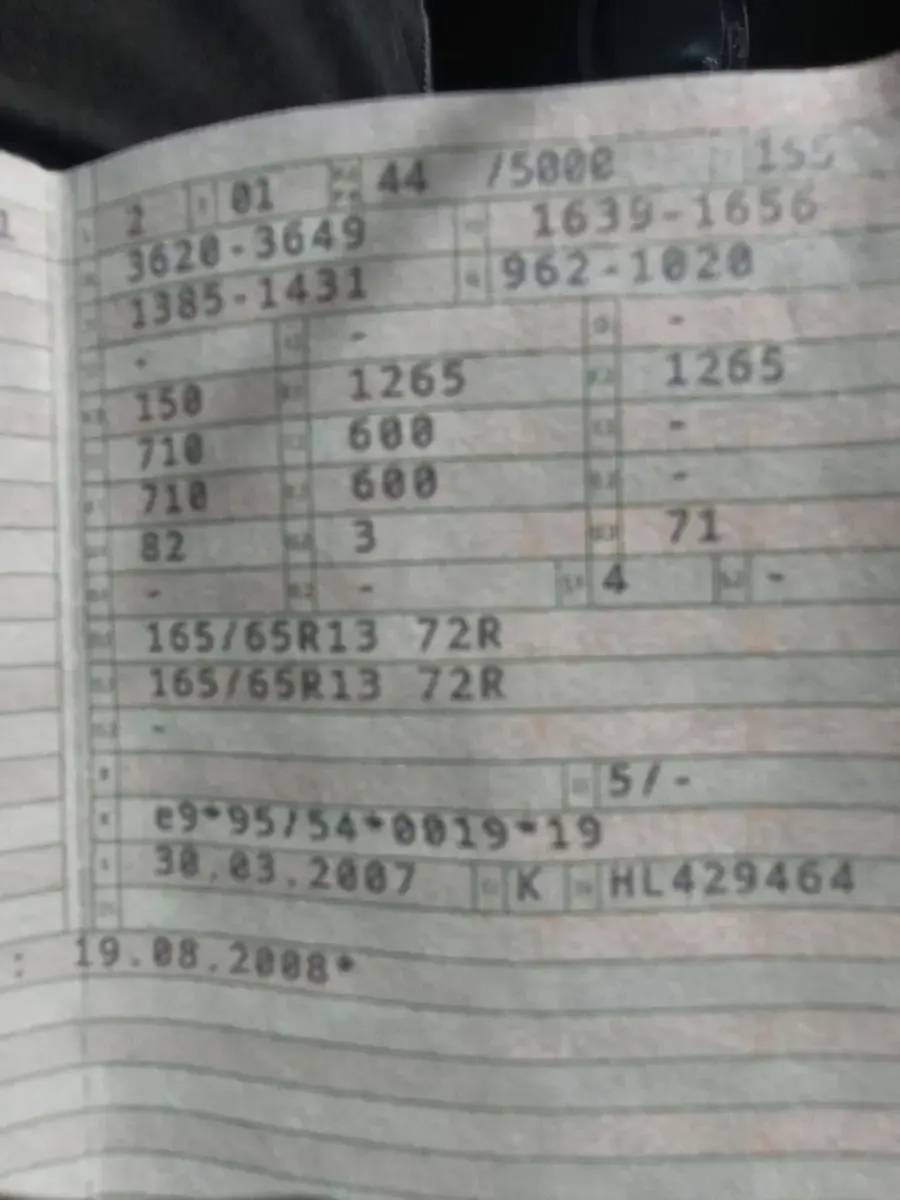 2 01 44 /5000 155
3620-3649 1639-1656
1385-1431 962-1020
- - -
150 1265 1265
710 600 -
710 600 -
82 3 71
- - 4 -
165/65R13 72R
165/65R13 72R
-
5/-
e9*95/54*0019*19
30.03.2007 K HL429464
: 19.08.2008*